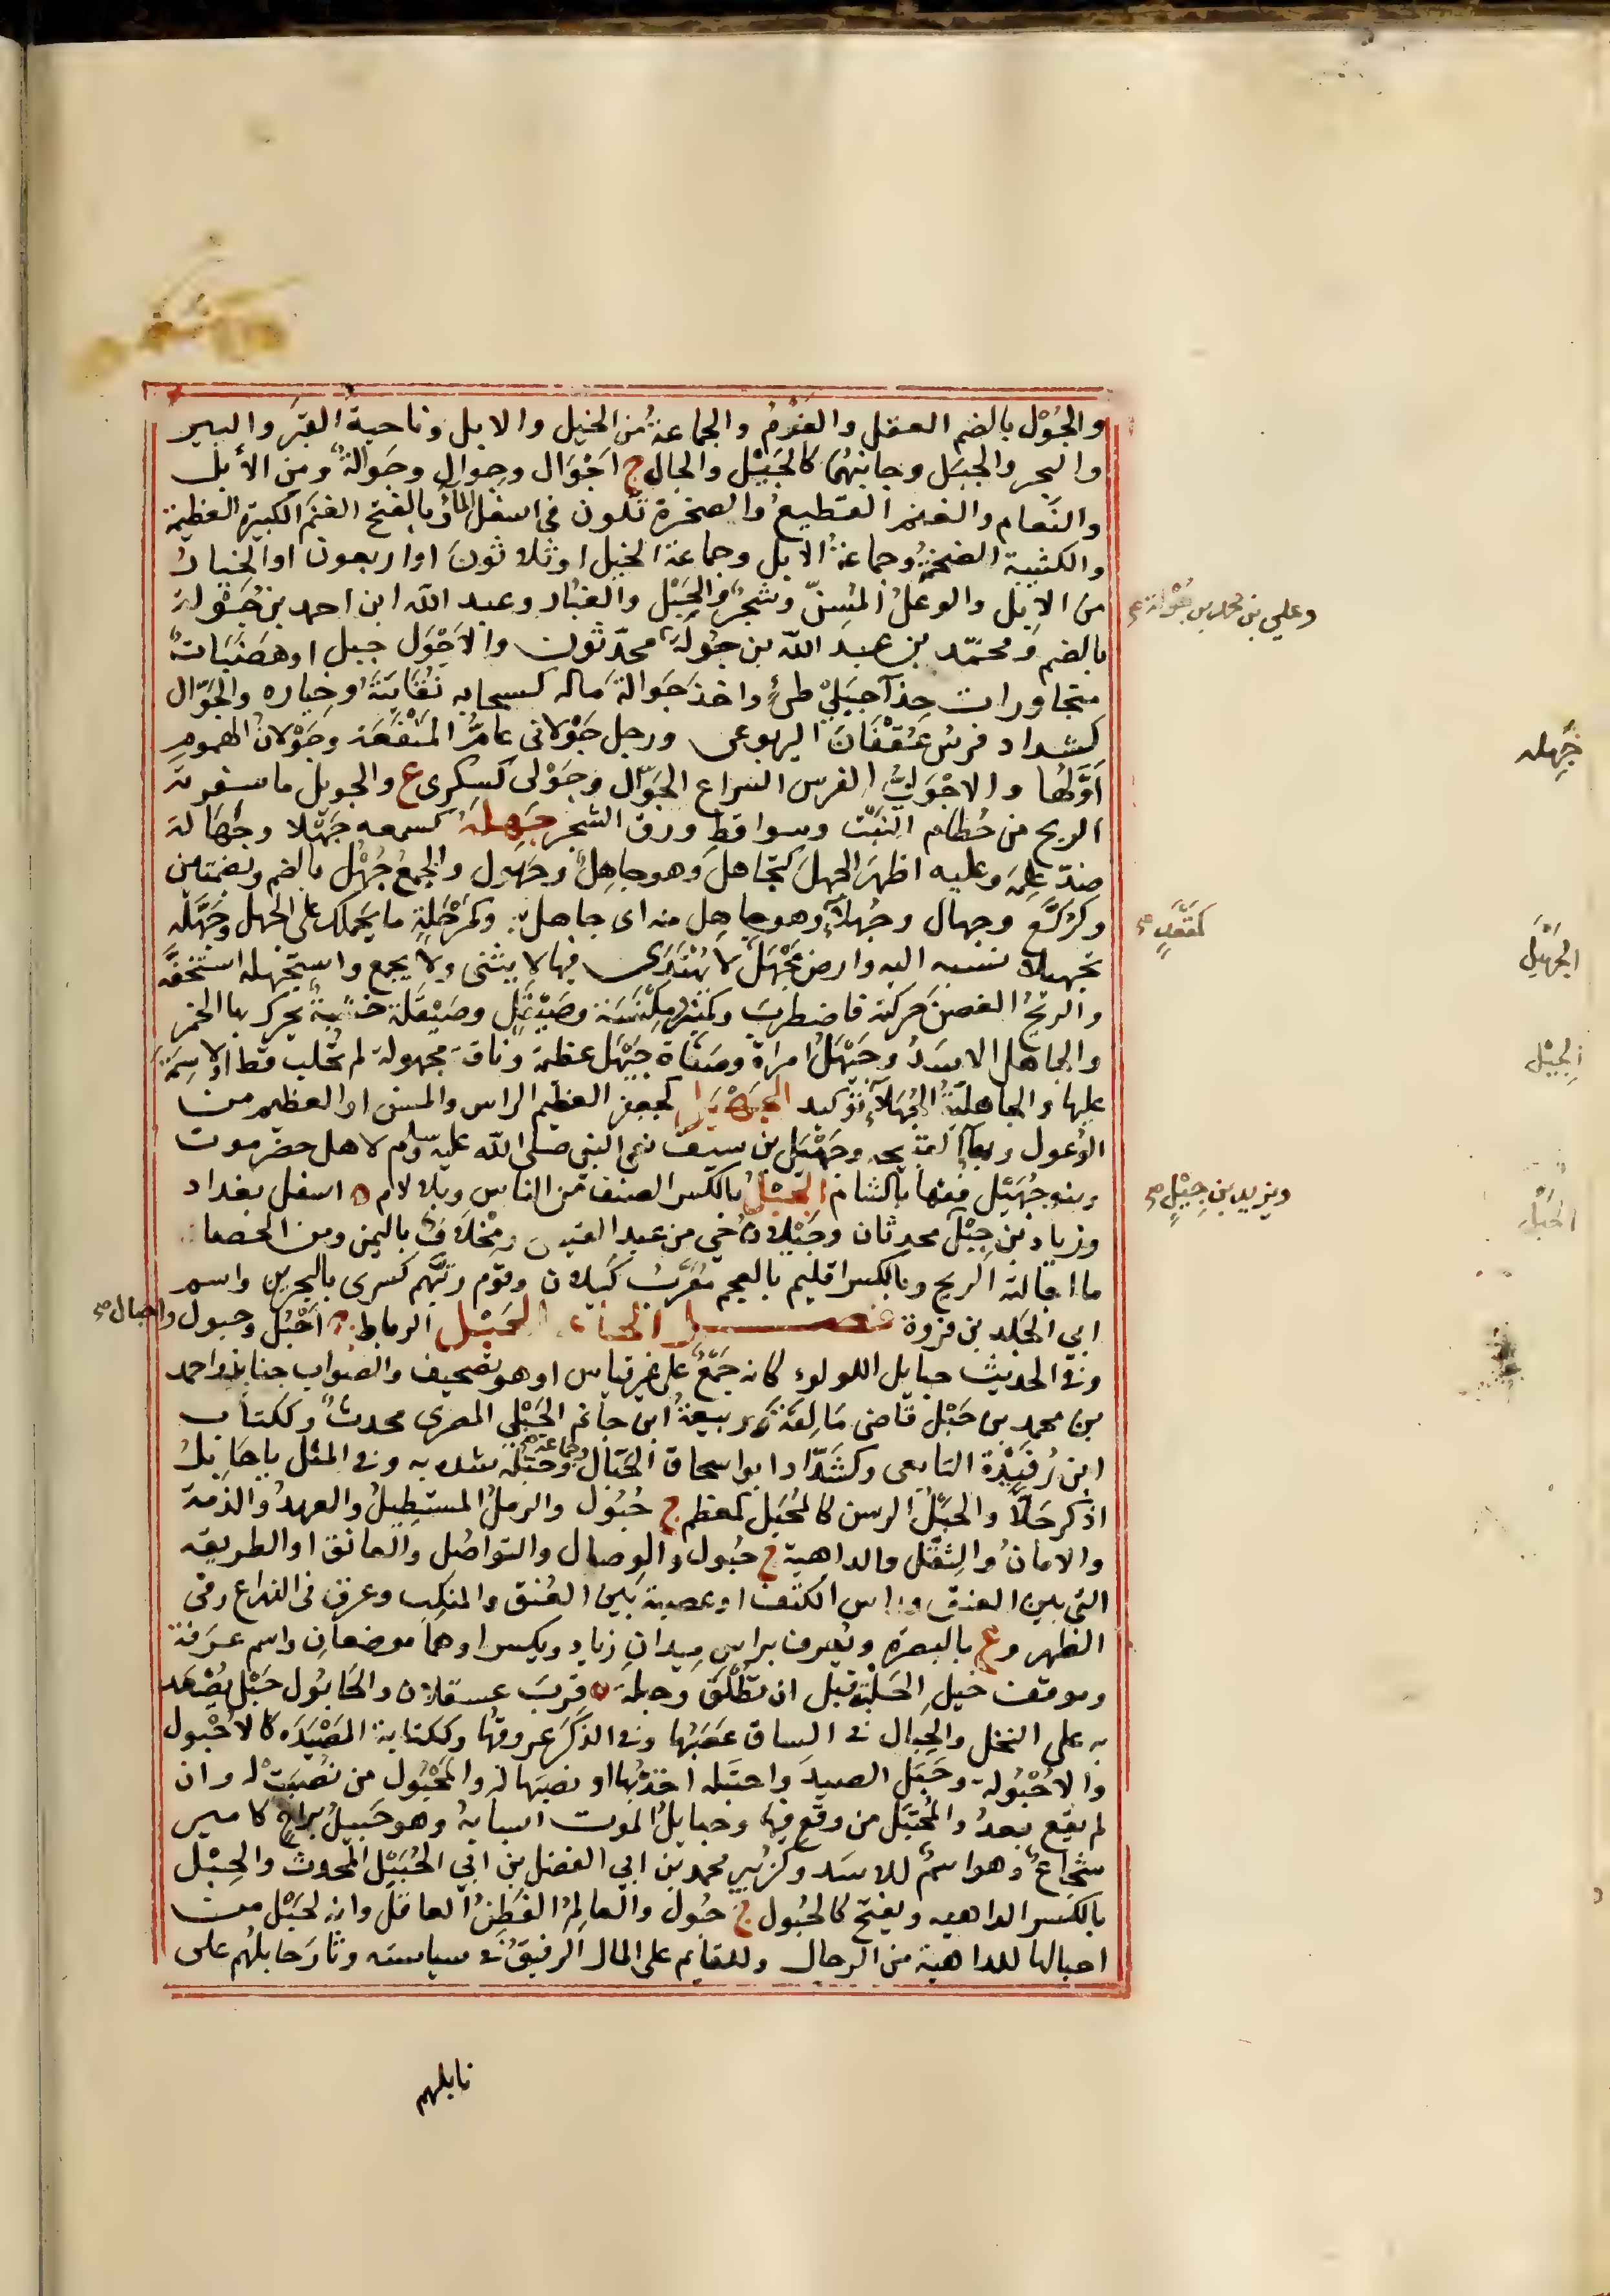 والجُوْل بالضم العقل والعَزْمُ والجماعةُ من الخيل والابل وناحية القبر والبير
والبحر والجبل وجانبُها كالجَِيْل والجال ج اَجْوَال وجِوال وجَوالةٌ ومن الأبل
والنَعام والغنم القَطيعُ والصخرة تكون فى اسفل المآء وبالفتح الغنم الكبيرة العظيمة
والكتيبة الضخمةُ وجماعةُ الابل وجماعة الخيل او ثلاثونَ او اربعون او الخيارُ
من الابل والوعلُ المُسِنّ وشجرٌ والجَبَل والغبُار وعبد الله ابن احمد بن جُوْلة
وعلي بن محمد بن جُوْلة صح
بالضم ومحمّد بن عبد الله بن جُولَة محدّثون والاَجْوَل جبل او هضَبَاتٌ
متجاورات حِذآ جبَلَيْ طىٍّ واخذ جَوالةَ ماله كسحابه نُقَايَتَهُ وخياره والجَوّال
كشداد فرس عُقْفَانَ اليربوعى ورجل جَوْلانى عامُّ المَنْفَعَة وجَوْلانُ الهموم
اَوَّلُها والاجْوَلىُّ الفرسَ السراع الجَوّال وجَوْلى كسكرى ع والجويل ما سفرته
الريح من حُطام النبْت وسواقطِ ورق الشجر جَهِلَهُ كسمعه جَهْلا وجَهَالة
جَهِله
ضدّ علِمَ وعليه اظهرَ الجهلَ كتجاهلَ وهو جاهِلٌ وجَهول والجمعُ جُهْل بالضم وبضمتين
وكرُكَّع وجهال وجُهلآءُ وهو جاهِل منه اى جاهل به وكمَرْحَلةٍ ما يَحملك على الجهل وجَهَّلَه
كمَقعَدٍ صح
تجهيلا نسبه اليه وارض مَجْهَلٌ لا يُهْتَدَى فيها لا يثنى ولا يجمع واستجهله استخفّه
الجَهْبَل
والريحُ الغصنَ حركته فاضطربَ وكمِنْبَرٍ ومِكْنَسَة وصَيْقَلٍ وصَيْقَلة خشبةٌ يحرك بها الخمر
والجاهل الاسَدُ وجَيْهَلُ امراة وصفَاة جَيْهَل عظمة وناقة مجهولة لم تُحلب قط او لا سِمَةَ
الجِيْل
عليها والجاهليّةُ الجُهلآءُ توكيد الجَهْبَل كجعفر العظيم الراس والمسن او العظيم من
الوُعول وبهآء القبيحه وجَهْبَل بن سيف نعى النبى صلى الله عليه وسلم لاهل حضرموت
وبنو جُهَيْل فقها بالشام الجِيْلُ بالكسر الصنف من الناس وبلا لام ة اسفل بغداد
ويزيد بن جِيْلٍ صح
وزياد بن جِيْل محدثان وجَيْلان حي من عبد القيس ومِخْلافٌ باليمن ومن الحصا
الحَبْل
ما اجالته الريح وبالكسر اقليم بالعجم مُعَرّبُ كيلان وقوم رتَّبهُم كسرى بالبحرين واسم
ابي الجَلْد بن فروة فصل الحاء الحَبْل الرباط ج اَحْبُل وحبول واحبال صح
وفى الحديث حبايل اللولوء كانه جَمْعٌ على غير قياس او هو تصحيف والصواب جنابذ واحمد
بن محمد بن حَبْل قاضى مَالِقَة وربيعةُ ابن حاتم الحَبْلي المصرى محدثٌ وككتاب
ابن رُفَيْدة التابعى وكشَدّاد ابو اسحاق الحَبّال وجماعة صح وحَبَلَه شده به وفى المثل يا حَابِلُ
اذكر حَلّا والحَبْلُ الرسن كالمُحَبّل كمعظم ج حُبُول والرملُ المستطيلُ والعهدُ والذمة
والامانُ والثِقَل والداهية ج حُبول والوصال والتواصُل والعاتق او الطريقه
التى بين العنق وراس الكتف او عصبة بَين العُنق والمنكِب وعرق فى الذراع وفى
الظهر وع بالبصره وتعرف براس مِيدانِ زياد ويكسر او هما موضعانِ واسم عرفة
وموقف خيل الحَلْبَة قبل ان تُطْلَق وحبلة ة قربَ عسقلان والحَابُول حَبْل يُصْعَد
به على النخل والحِبال فى الساق عَصَبُها وفى الذكَر عروقُها وككتابة المَصْيَدَه كالاُحْبول
والاُحْبُوله وحَبَل الصيدَ واحتبله اخذُ بها او نصبَها له والمَحْبُول من نُصِبَتْ له وان
لم يقع بعدُ والمُحْتبَل من وقَع فيها وحبايلُ الموت اسبابهُ وهو حَبيلُ براحٍ كامير
شجاعٌ وهو اسمٌ للاسَد وكزُبير محمد بن ابى الفضل بن ابى الحُبَيْل المحدث والحِبْل
بالكسر الداهيه ويفتح كالحُبول ج حُبول والعالِمُ الفَطِنُ العاقل وانه لحِبْل من
احبالها للداهية من الرجال وللقايم على المال الرفيقُ فى سياسته وثار حابلُهم على
نابلهم